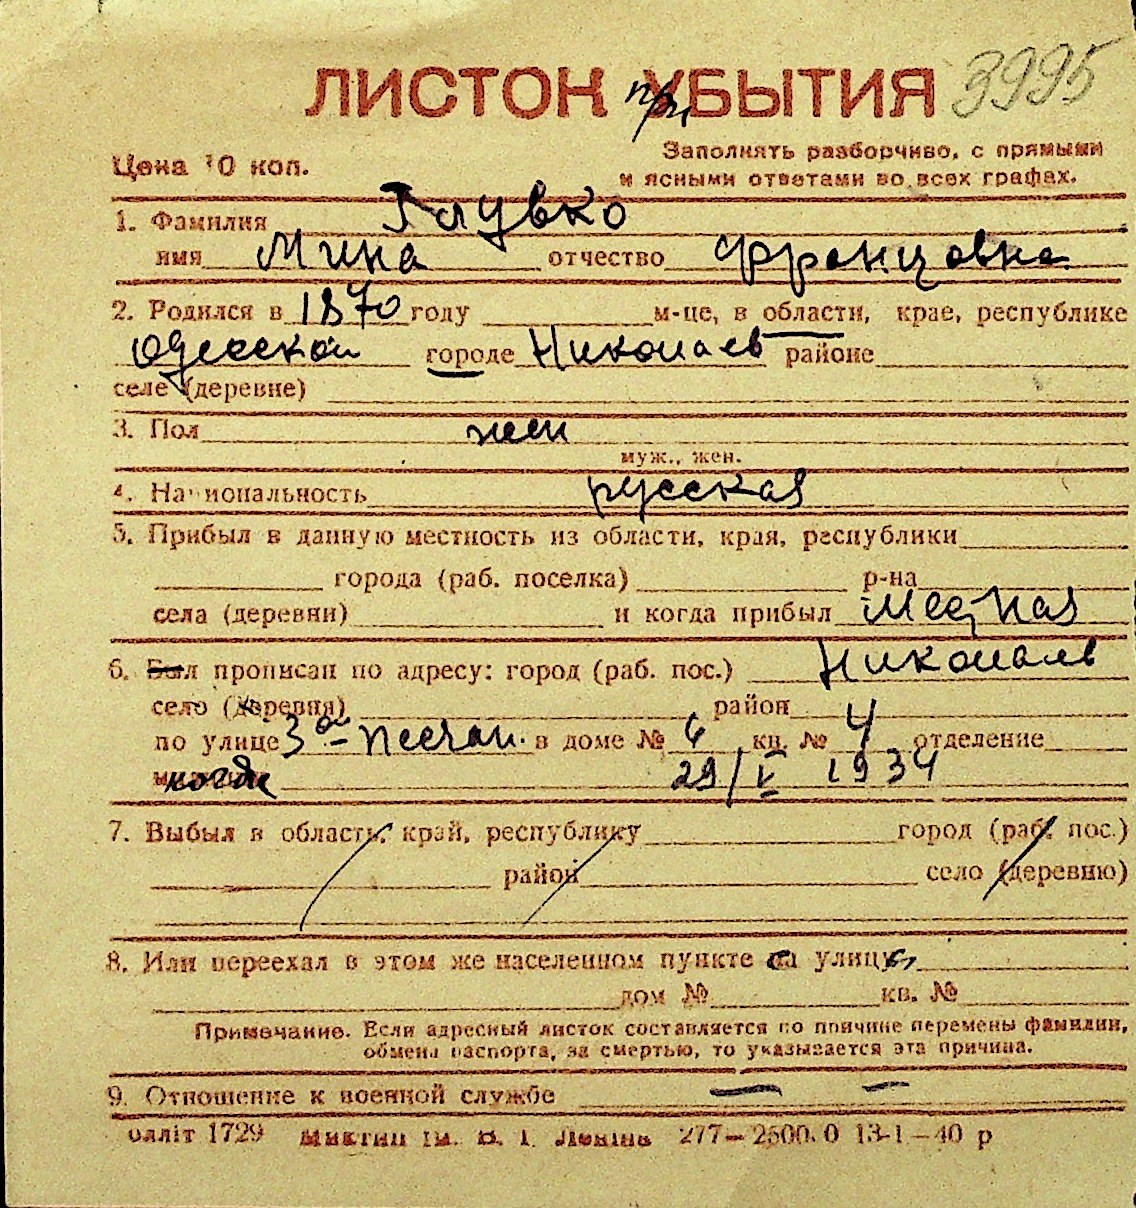 ЛИСТОК при УБЫТИЯ 3995
Цена 10 коп.
Заполнять разборчиво, с прямыми
и ясными ответами во всех графах.
1. Фамилия Глувко
имя Мина отчество Францовна
2. Родился в 1870 году м-це, в области, крае, республике
Одесской городе Николаев районе
селе (деревне)
3. Пол жен
муж., жен.
4. Национальность русская
5. Прибыл в данную местность из области, края, республики
города (раб. поселка) р-на
села (деревни) и когда прибыл местная
6. Был прописан по адресу: город (раб. пос.) Николаев
село (деревня) район
по улице 3ая Песчан. в доме № 6 кв. № 4 отделение
когда 29/V 1934
7. Выбыл в область, край, республику город (раб. пос.)
район село (деревню)
8. Или переехал в этом же населенном пункте с улицы
дом № кв. №
Примечание. Если адресный листок составляется по причине перемены фамилии,
обмена паспорта, за смертью, то указывается эта причина.
9. Отношение к военной службе
олліт 1729 Миктип ім. В. І. Леніна 277—2500.0 13-1-40 р